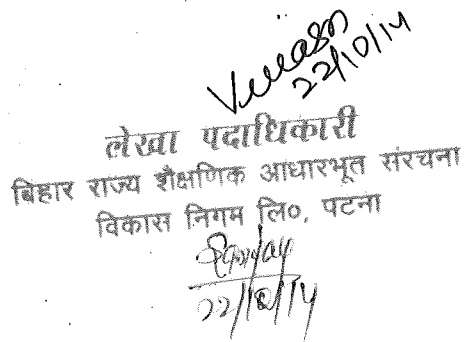 22/10/14
लेखा पदाधिकारी
बिहार राज्य शैक्षणिक आधारभूत संरचना
विकास निगम लि०, पटना
22/10/14